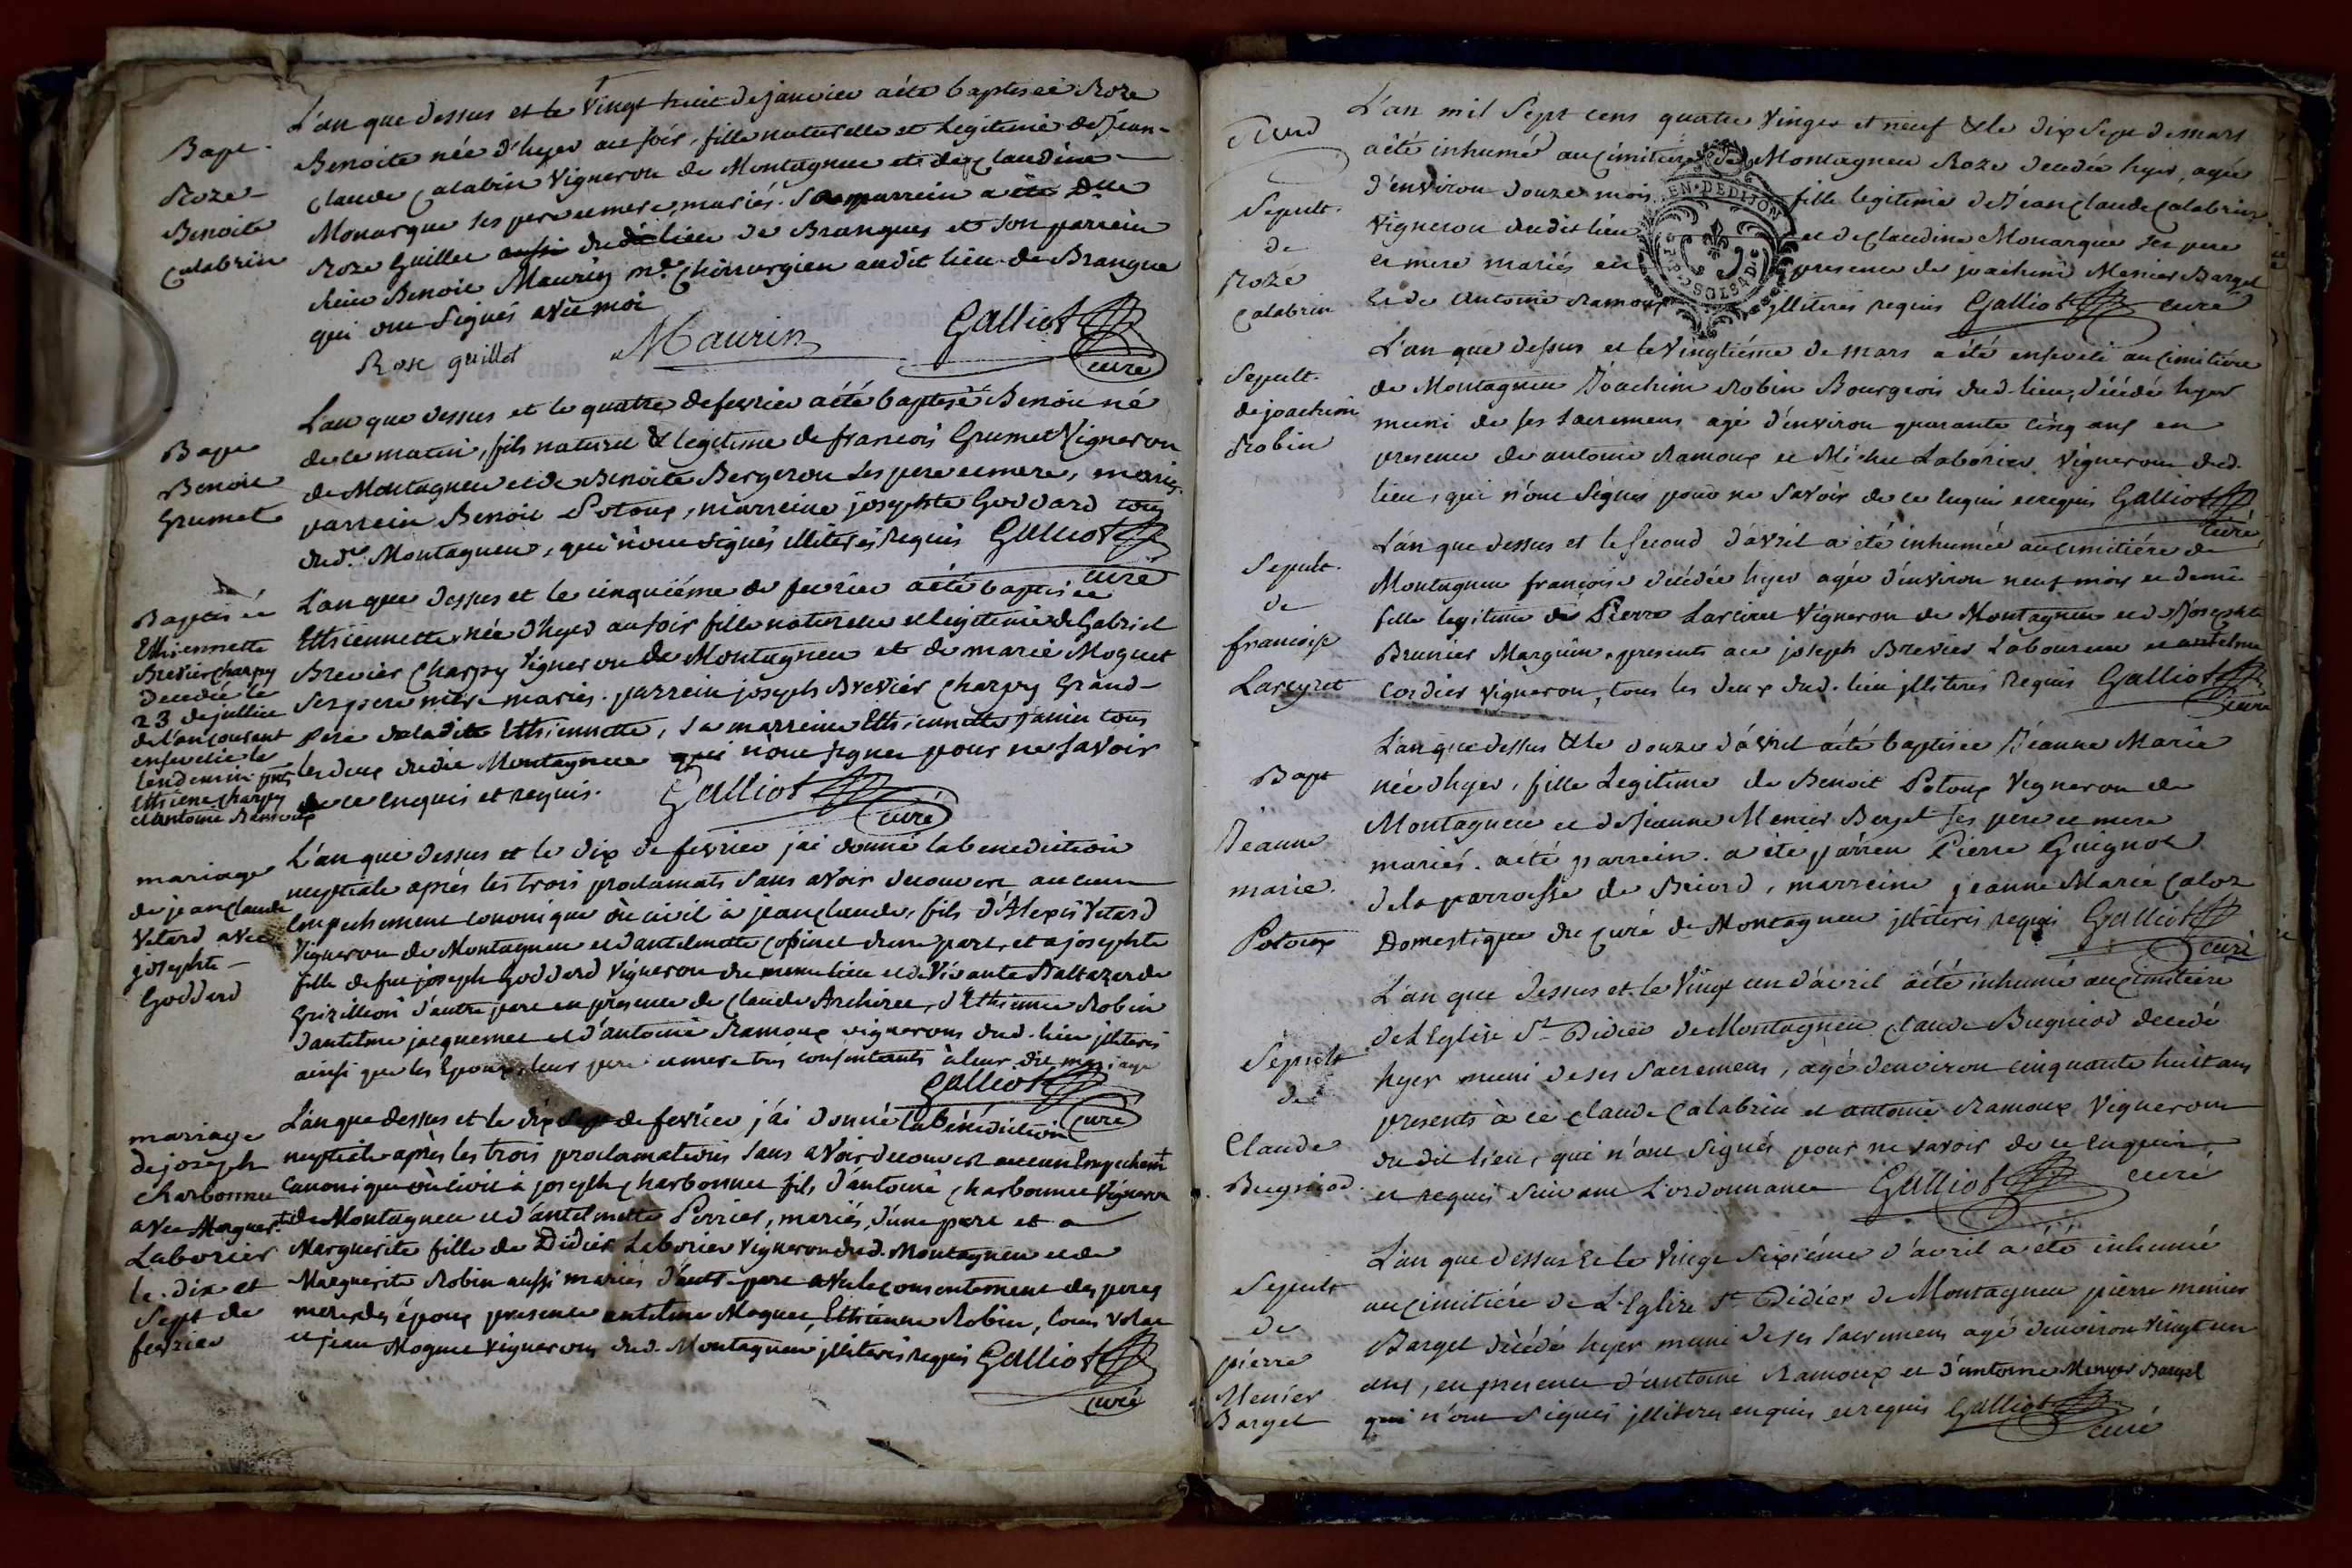 Bapt.
Roze
Benoite
Calabrin
L'an que dessus et le Vingt huit de janvier a été baptisée Roze
Benoite née d'hyer au soir, fille naturelle et legitime de Jean-
Claude Calabrin Vigneron de Montagneu et de Claudine
Monarque ses pere et mere, mariés. Sa marreine a été Dlle
Roze Guillet aussi dudit lieu de Brangues et son parrein
sieur Benoit Maurin me. Chirurgien audit lieu de Brangue
qui ont Signés avec moi
Rose guillet Maurin Galliot
curé
Bapt
Benoit
Grumet
L'an que dessus et le quatre de fevrier a été baptisé Benoit né
de ce matin, fils naturel & legitime de francois Grumet Vigneron
de Montagneu et de Benoite Bergeron ses pere et mere, mariés.
parrein Benoit Potoux, marreine josephte Goddard tous
dud. Montagneu, qui n'ont signés illiterés Requis Galliot
curé
Baptisée
Ethiennette
Brevier Charpy
decedée le
23 de juillet
de l'an courant
ensevelie le
lendemain pnts
Ethiene charpy
et Antoine Ramoux
L'an que dessus et le cinquiéme de fevrier a été baptisée
Ethiennette née d'hyer au soir fille naturelle et legitime de Gabriel
Brevier Charpy Vigneron de Montagneu et de marie Moguet
ses pere et mere mariés. parrein joseph Brevier Charpy Grand-
Pere de ladite Ethiennette, sa marreine Ethiennette Janin tous
les deux dudit Montagneu qui n'ont signer pour ne savoir
de ce enquis et requis. Galliot
curé
mariage
de jean Claude
Vetard avec
josephte
Goddard
L'an que dessus et le dix de fevrier j'ai donné la benediction
nuptiale aprés les trois proclamats sans avoir decouvert aucun
Empechement cononique ou civil à jean Claude, fils d'Alexis Vetard
Vigneron de Montagneu et d'antelmette Copinet d'une part, et a josephte
fille de feu joseph Goddard Vigneron du meme lieu et de Vivante Baltazarde
Grizillion d'autre part en presence de Claude Archirel, d'Ethienne Robin
d'antelme jacquemet et d'antoine Ramoux vignerons dud. lieu jlliterés
ainsi que les Epoux, leur pere et mere tres consentants à leur dit mariage
Galliot
curé
mariage
de joseph
Charbonnet
avec Marguerite
Laborier
le dix et
Sept de
fevrier
L'an que dessus et le dix Sept de fevrier j'ai donné la bénédiction
nuptiale après les trois proclamations sans avoir decouvert aucun Empechemt
Canonique ou civil à joseph Charbonnet fils d'antoine Charbonnet Vigneron
de Montagneu et d'antelmette Perrier, mariés, d'une part et a
Marguerite fille de Didier Laborier Vigneron dud. Montagneu et de
Marguerite Robin aussi mariés d'autre part avec le consentement des peres
meres des époux presence antelme Moguet, Ethienne Robin, Louis Volat
et jean Moguet Vignerons dud. Montagneu jlliterés requis Galliot
curé
Sepult.
de
Roze
Calabrin
L'an mil Sept cens quatre Vingts et neuf & le dix Sept de mars
a été inhumé au Cimitiere de Montagneu Roze decedée hyer, agée
d'environ douze mois fille legitime de Jean Claude Calabrin
Vigneron dudit lieu et de Claudine Monarque ses pere
et mere mariés en presence de joachim Menier Barget
et de Antoine Ramoux jlliterés requis Galliot curé
EN. DE DIJON
Sepult.
de joachim
Robin
L'an que dessus et le Vingtiéme de mars a été enseveli au Cimitiere
de Montagneu Joachim Robin Bourgeois dud. lieu, décédé hyer
muni de ses sacremens agé d'environ quarante cinq ans en
presence de antoine Ramoux et Michel Laborier Vigneron dud.
lieu, qui n'ont Signés pour ne savoir de ce enquis et requis Galliot
curé
Sepult.
de
francoise
Lareyret
L'an que dessus et le second d'avril a été inhumée au cimitiére de
Montagneu françoise décédée hyer agée d'environ neuf mois et demi
fille legitime de Pierre Vigneron de Montagneu et de Josephte
Brunier Marguin, presents a ce joseph Brevier Laboureur et antelme
Cordier Vigneron, tous les deux dud. lieu jlliterés Requis Galliot
curé
Bapt
Jeanne
marie.
Potoux
L'an que dessus & le douze d'avril a été baptisée Jeanne Marie
née d'hyer, fille Legitime de Benoit Potoux Vigneron de
Montagneu et de Jeanne Menier Berget ses pere et mere
mariés. a été parrein. a été parrein Pierre Guignot
de la parroisse de Briord, marreine jeanne Marie Caloz
Domestique du Curé de Montagneu jlliterés requis Galliot
curé
Sepult
de
Claude
Bugniod
L'an que dessus et le Vingt un d'avril a été inhumé au cimitiere
de l'Eglise St. Didier de Montagneu Claude Bugniod decedé
hyer muni de ses Sacremens, agé d'environ cinquante huit ans
presents à ce Claude Calabrin et antoine Ramoux Vignerons
dudit lieu, qui n'ont Signés pour ne savoir de ce enquis
et requis suivant l'ordonnance Galliot curé
Sepult
de
pierre
Menier
Barget
L'an que dessus & le Vingt Sixiéme d'avril a été inhumé
au cimitiére de L'Eglise St. Didier de Montagneu pierre menier
Barget décédé hyer muni de ses sacremens agé d'environ Vingt un
ans, en presence d'antoine Ramoux et d'antoine Menier Barget
qui n'ont Signés jlliterés enquis et requis Galliot
curé